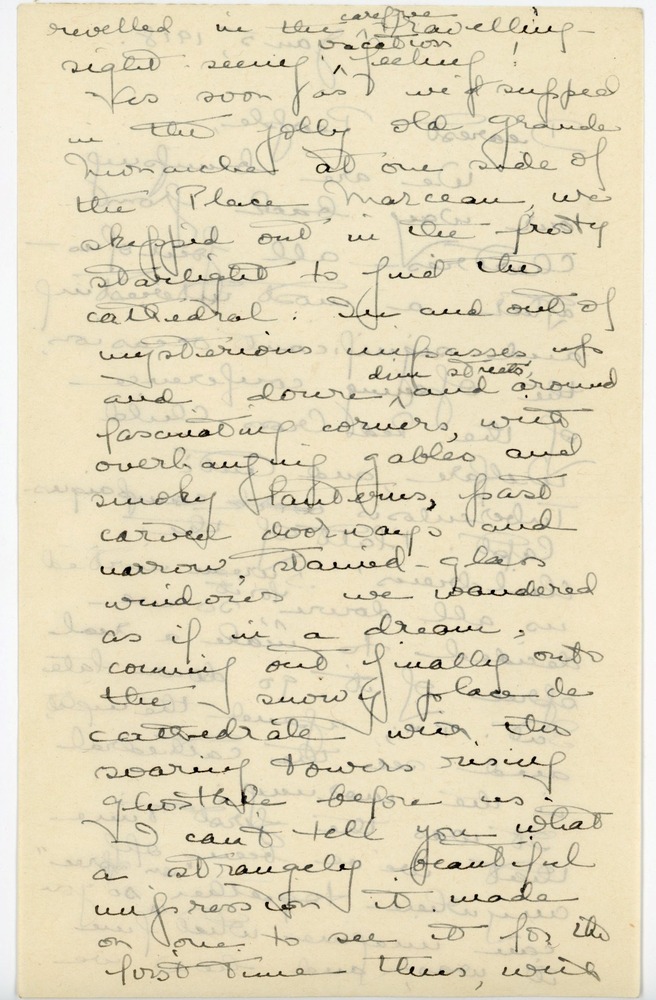 revelled in the carefree travelling -
sight-seeing, vacation feeling!
As soon as we'd supped
in the jolly old Grande
Monarche at one side of
the Place Marceau, we
skipped out in the frosty
starlight to find the
cathedral. In and out of
mysterious impasses, up
and down dim streets, and around
fascinating corners, with
overhanging gables and
smoky lanterns, past
carved doorways and
narrow, stained-glass
windows we wandered
as if in a dream,
coming out finally onto
the snowy place de
cathedrale with the
soaring towers rising
ghostlike before us.
I can't tell you what
a strangely beautiful
impression it made
on one to see it for the
first time - thus, with